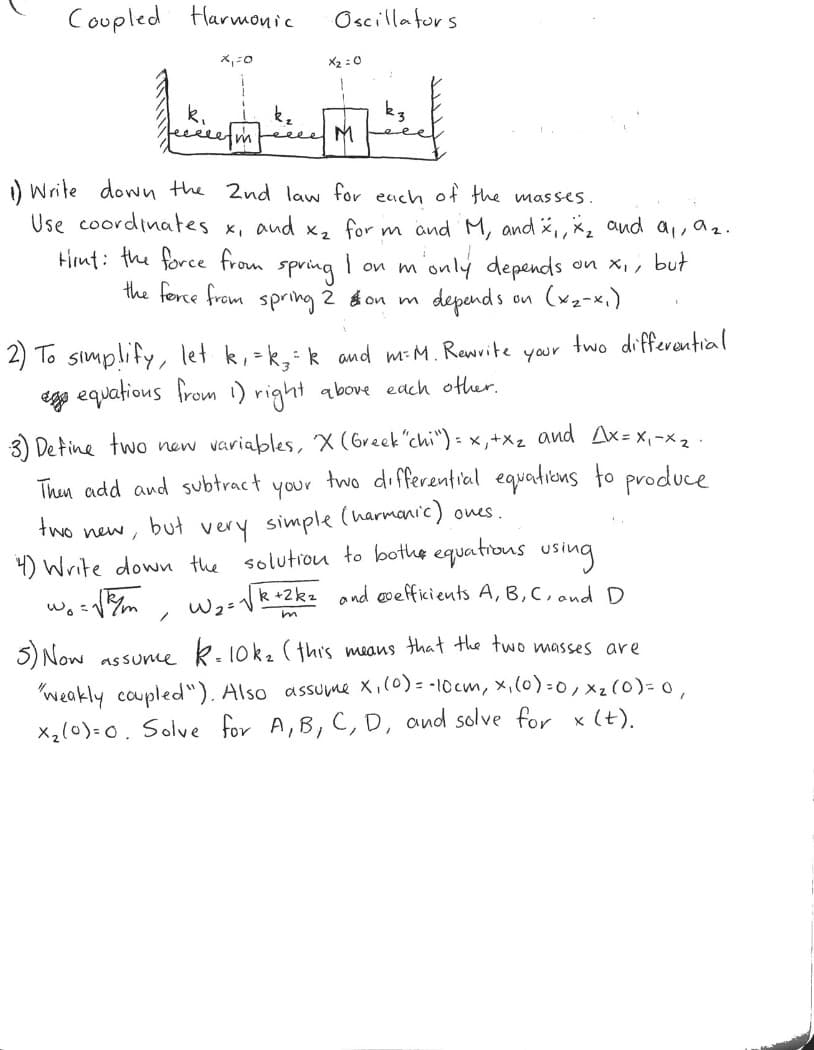 Coupled Harmonic Oscillators
x₁=0 x₂=0
k₁ k₂ k₃
m M
1) Write down the 2nd law for each of the masses.
Use coordinates x₁ and x₂ for m and M, and ẍ₁, ẍ₂ and a₁, a₂.
Hint: the force from spring 1 on m only depends on x₁, but
the force from spring 2 on m depends on (x₂-x₁)
2) To simplify, let k₁=k₃=k and m=M. Rewrite your two differential
equations from 1) right above each other.
3) Define two new variables, X (Greek "chi") = x₁+x₂ and Δx = x₁-x₂.
Then add and subtract your two differential equations to produce
two new, but very simple (harmonic) ones.
4) Write down the solution to both equations using
ω₀ = √k/m , ω₂ = √(k+2k₂)/m and coefficients A, B, C, and D
5) Now assume k=10k₂ (this means that the two masses are
"weakly coupled"). Also assume x₁(0) = -10cm, x₁(0)=0, x₂(0)=0,
x₂(0)=0. Solve for A, B, C, D, and solve for x(t).